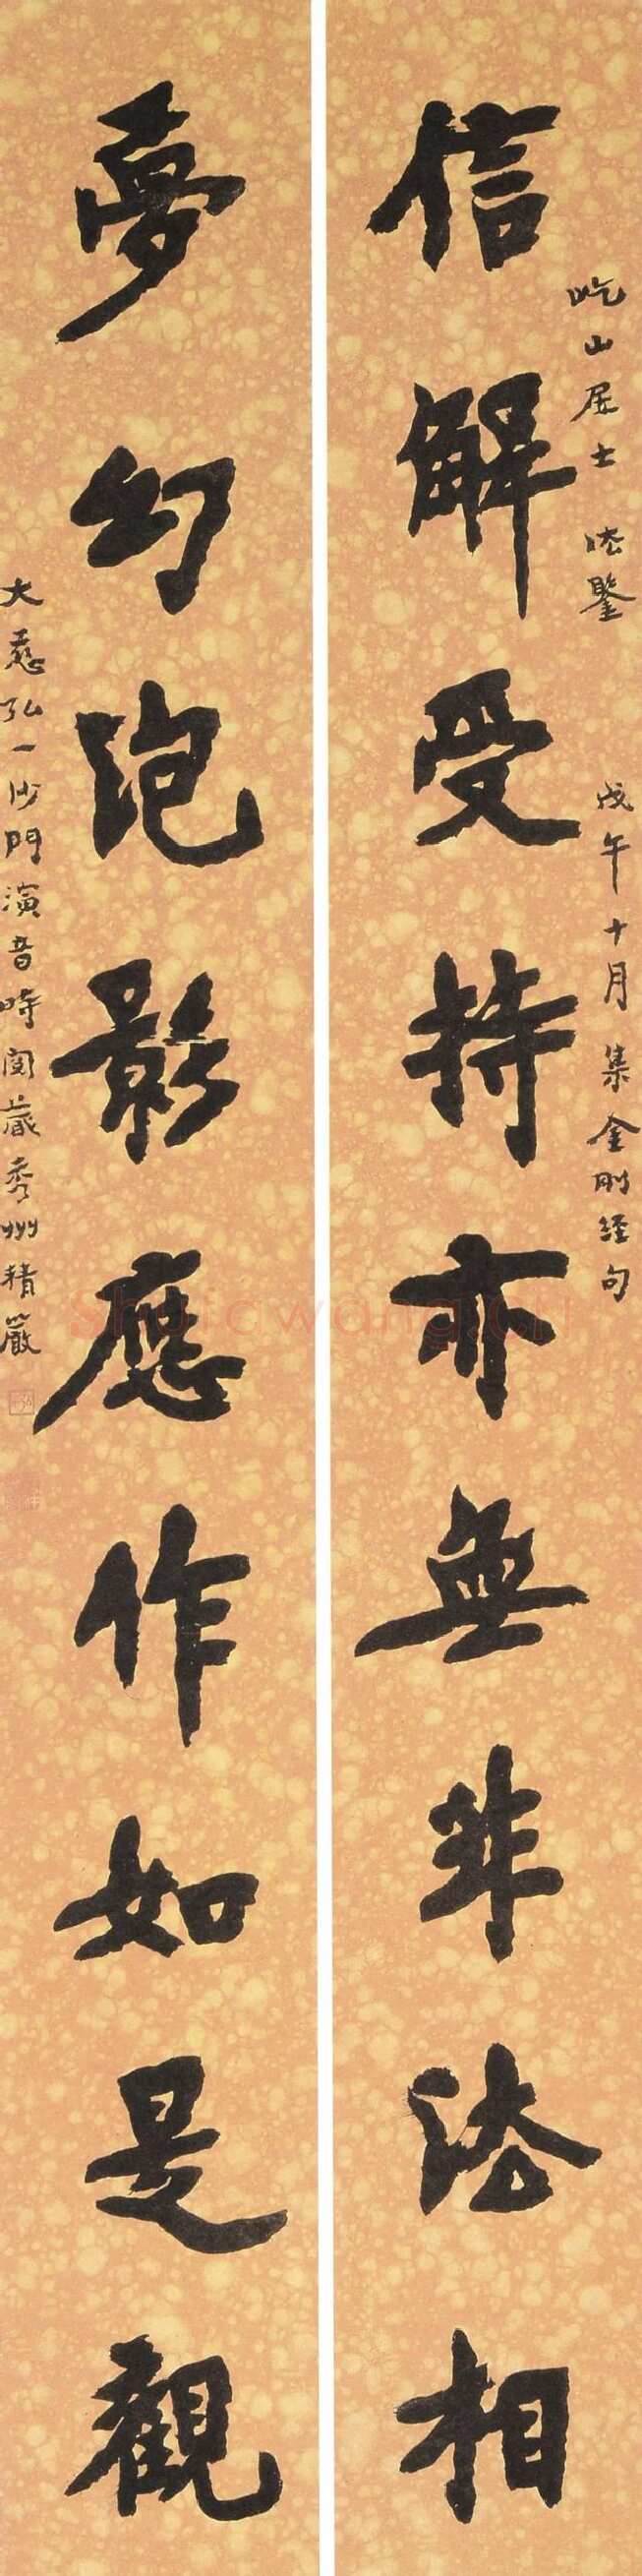 屹山居士 法鑒 戊午十月集金剛經句
信解受持亦無非法相
夢幻泡影應作如是觀
大慈弘一沙門演音時閱藏秀州精嚴